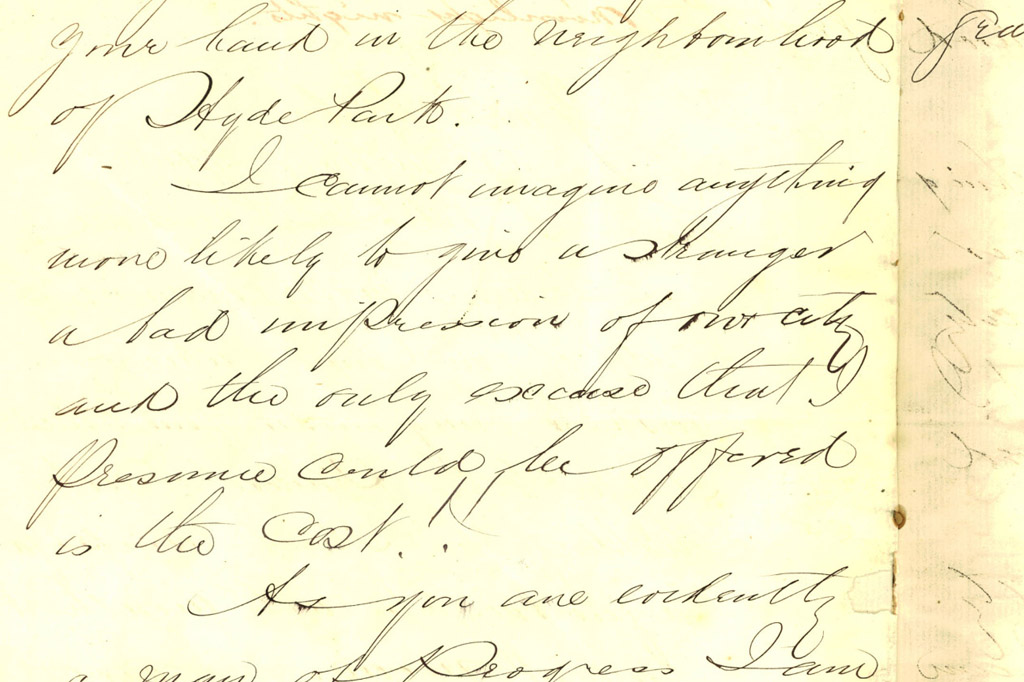 your hand in the neighbourhood
of Hyde Park.
I cannot imagine anything
more likely to give a stranger
a bad impression of our city
and the only excuse that I
presume could be offered
is the cost.
As you are evidently
a man of Progress I am